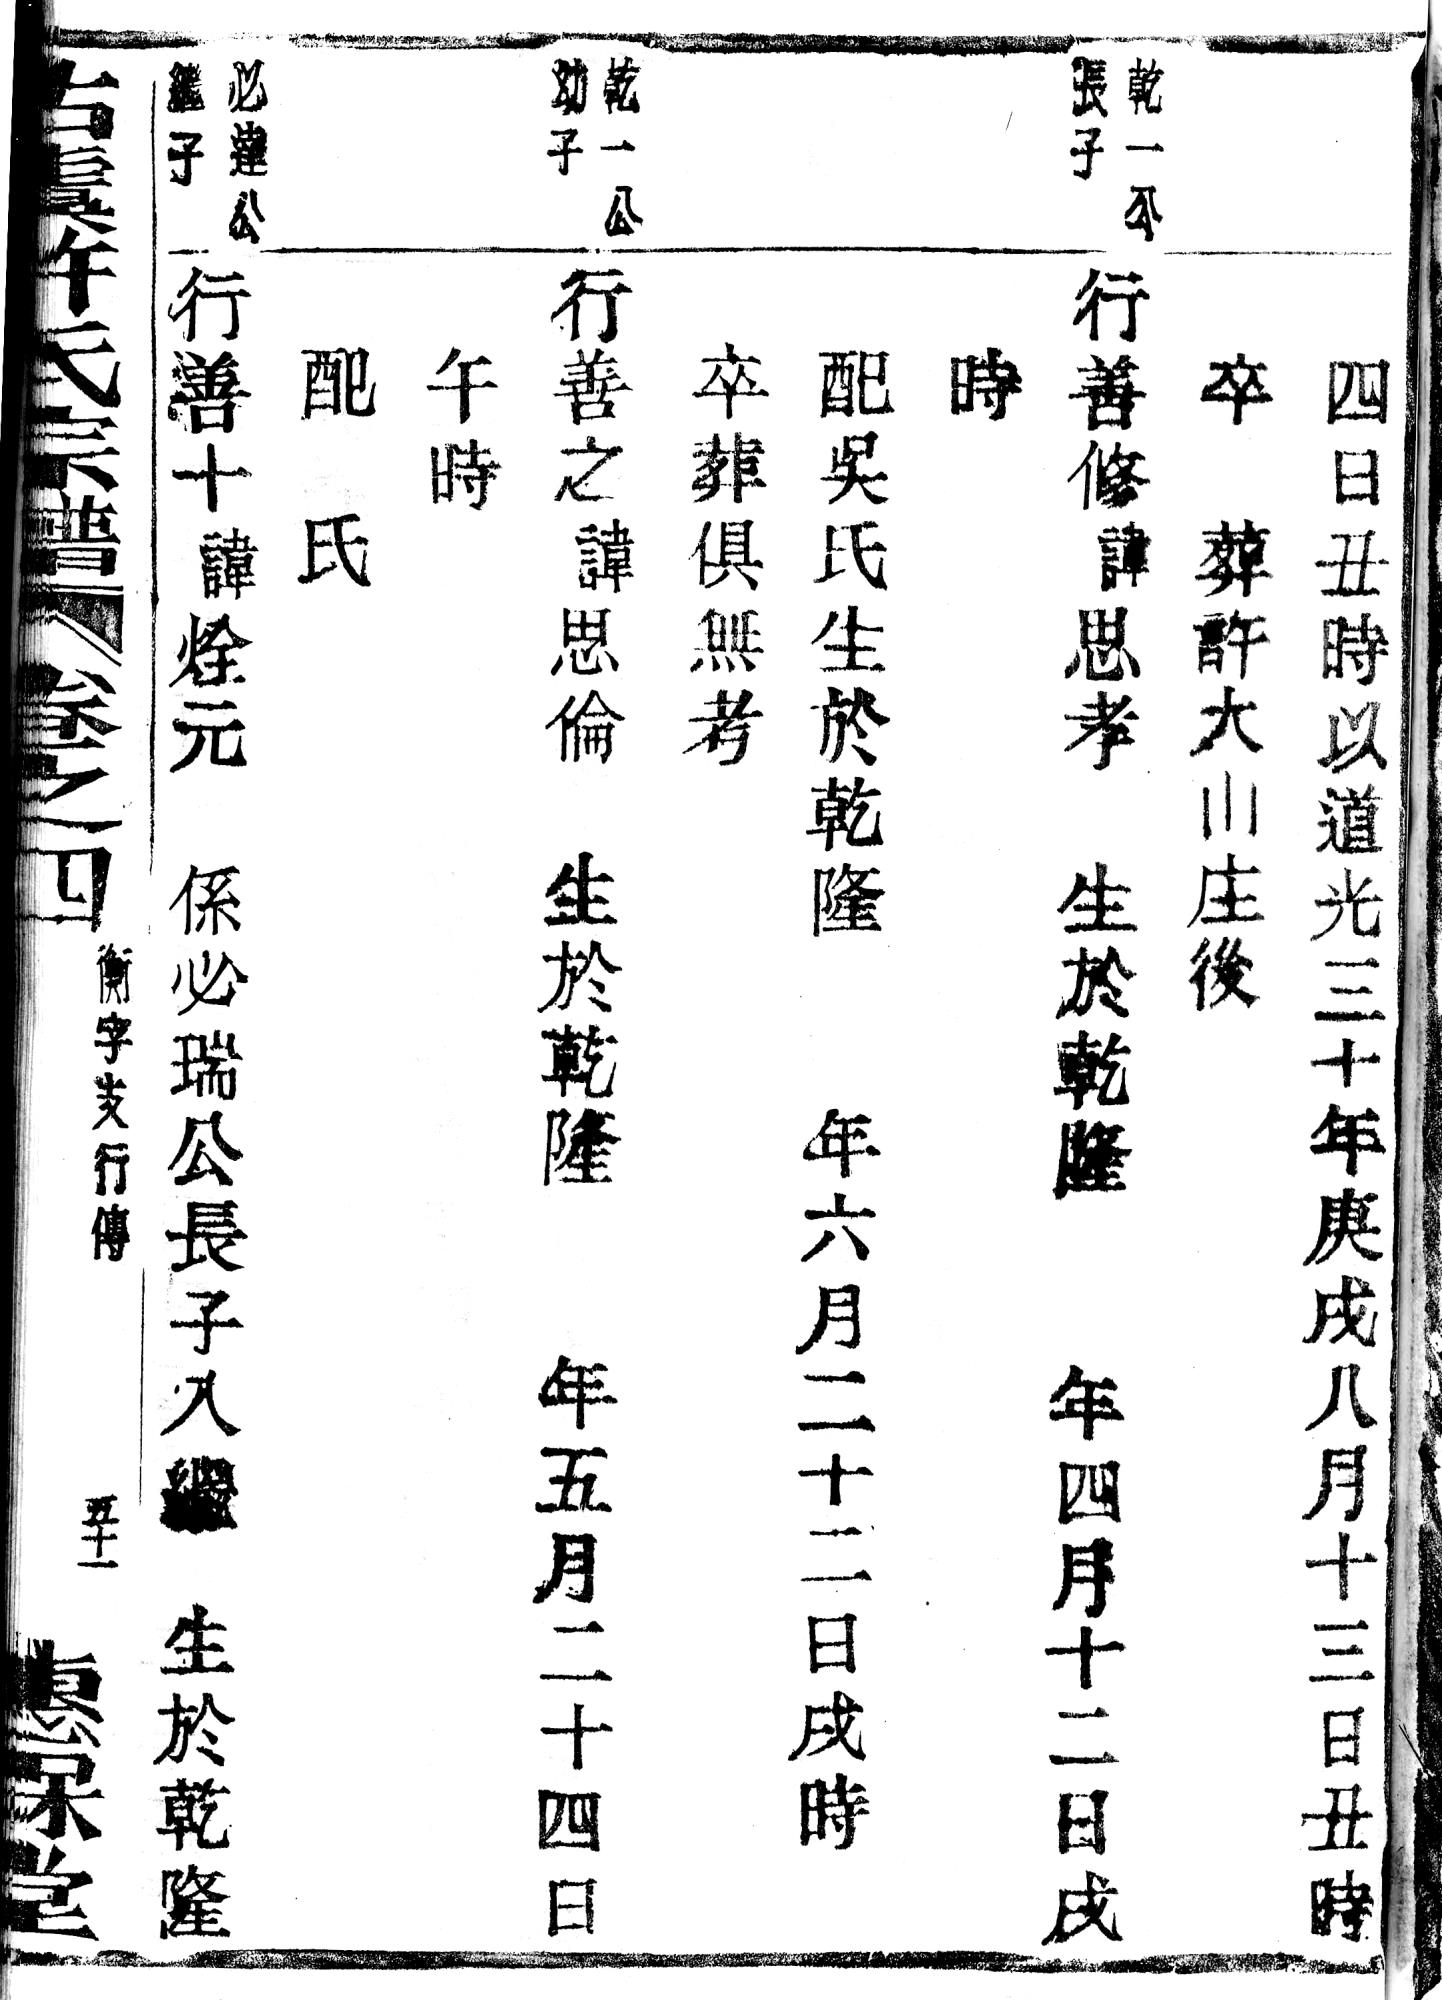 四日丑時以道光三十年庚戌八月十三日丑時
卒　葬許大山庄後
乾一公
長子
行善修諱思孝　生於乾隆　年四月十二日戌
時
配吳氏生於乾隆　年六月二十二日戌時
卒葬俱無考
乾一公
幼子
行善之諱思倫　生於乾隆　年五月二十四日
午時
配　氏
必達公
繼子
行善十諱烇元　係必瑞公長子入繼　生於乾隆
古虞許氏宗譜　卷之四　衡字支行傳　五十一　惠保堂